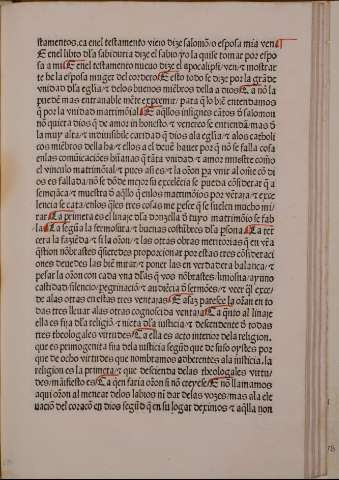 stamentos. ca enel testamento viejo dize salomõ/o esposa mia ven
E enel libro dla sabiduria dize el sabio/yo la quise tomar por espo
sa a mi E enel testamento nueuo dize el apocalipsi/ven ⁊ mostrar
te he la esposa muger del cordero E esto todo se dize por la grãde
vnidad dla eglia/⁊ delos buenos miẽbros della a dios La nõ la
puedẽ mas entrañable mẽte exprimir para q̃ lo biẽ entendamos
q̃ por la vnidad matrimoñial E aq̃llos insignes cãtos d salomon
nõ quita a dios q̃ de amor in honesto/⁊ venereo se entiendã mas d
la muy alta/⁊ indiuisible caridad q̃ dios ala eglia/⁊ alos catholi
cos miẽbros della ha/⁊ ellos a el deuẽ hauer por q̃ nõ se falla cosa
enlas comũicaciões hũanas q̃ tãta vnidad/⁊ amor muestre como
el vinculo matrimoñial/
es es fallada/nõ se dõde mejor su excelẽcia se pueda cõsiderar q̃ a
semejãça/⁊ muestra d aq̃llo q̃ enlos matrimonios por vẽtaja/⁊ exce
lencia se cata/enlos q̃les tres cosas me pesce q̃ se suelen mucho mi
rar La primeta es el linaje dla donzella d cuyo matrimõio se fab
la La segũda la fermosura/⁊ buenas costũbres dla psona La ter
cera la faziẽda/
qstion nõbrastes
ciones deuedes las biẽ mirar/⁊ poner las en verdadera balança/⁊
pesar la oron con cada vna dlas q̃ vos nõbrastes/limosna/ayuno
castidad silencio/pegrinacion/⁊ audiẽcia d sermões/⁊ veer q̃l exce
de alas otras en estas tres ventajas E asaz paresce la orañ en to
das tres lleuar alas otras cognoscida ventaja La q̃nto al linaje
ella es fija dla religiõ/⁊ nieta dla iusticia/⁊ descendente d todas
tres theologales virtudes La ella es acto interior dela religion.
que es primogenita fija dela iusticia segũd que de suso oystes por
que de ocho virtudes que nombramos adherentes ala iusticia. la
religion es la primera/⁊ que descienda delas theologales virtu
des/manifiesto es La quẽ faria orõn si nõ creyese E nõ llamamos
aqui oriõn al menear delos labios ni dar delas vozes/mas ala ele
uaciõ del coraçõ en dios segũd q̃ en su logar deximos ⁊ aq̃lla non